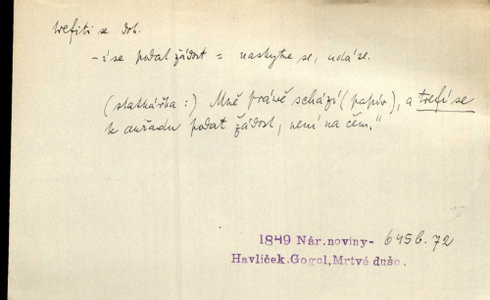 trefiti se dok.
- í se podat žádost = naskytne se, udá se.
(statkářka:) Mně právě schází (papír), a trefí se
k ouřadu podat žádost, není na čem."
1849 Nár. noviny- 645 b. 72
Havlíček. Gogol, Mrtvé duše.